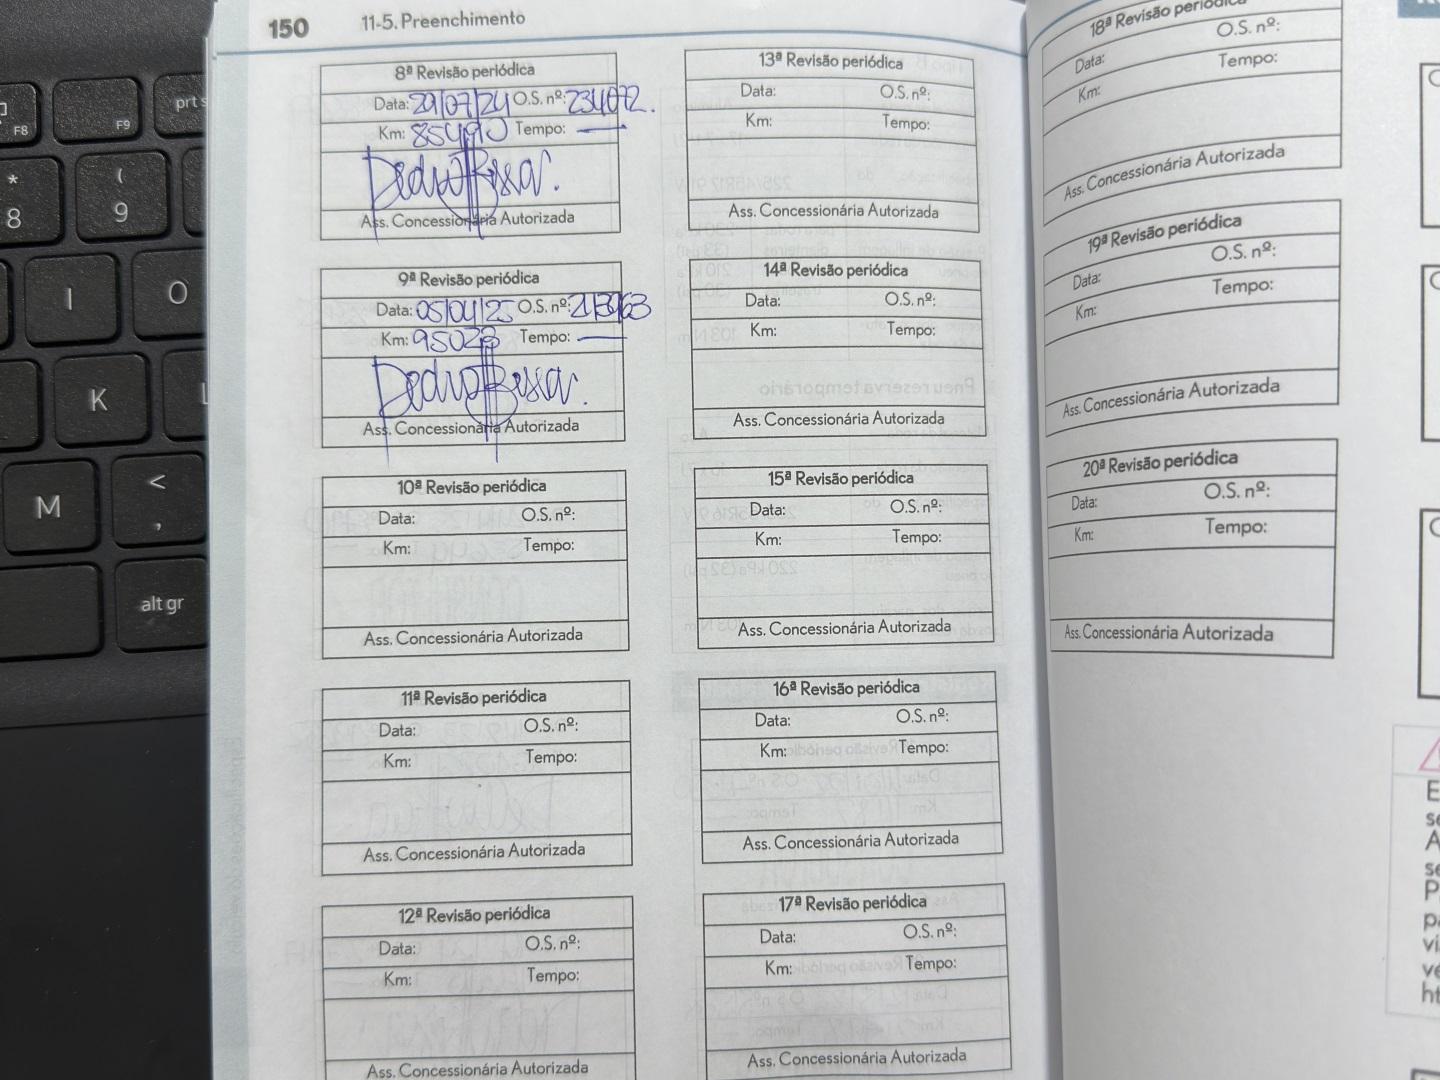 150 11-5. Preenchimento
8ª Revisão periódica
Data: 29/07/24 O.S. nº: 234072.
Km: 85490 Tempo: —
Ass. Concessionária Autorizada
9ª Revisão periódica
Data: 05/04/25 O.S. nº:
Km: 95023 Tempo: —
Ass. Concessionária Autorizada
10ª Revisão periódica
Data: O.S. nº:
Km: Tempo:
Ass. Concessionária Autorizada
11ª Revisão periódica
Data: O.S. nº:
Km: Tempo:
Ass. Concessionária Autorizada
12ª Revisão periódica
Data: O.S. nº:
Km: Tempo:
Ass. Concessionária Autorizada
13ª Revisão periódica
Data: O.S. nº:
Km: Tempo:
Ass. Concessionária Autorizada
14ª Revisão periódica
Data: O.S. nº:
Km: Tempo:
Ass. Concessionária Autorizada
15ª Revisão periódica
Data: O.S. nº:
Km: Tempo:
Ass. Concessionária Autorizada
16ª Revisão periódica
Data: O.S. nº:
Km: Tempo:
Ass. Concessionária Autorizada
17ª Revisão periódica
Data: O.S. nº:
Km: Tempo:
Ass. Concessionária Autorizada
18ª Revisão periódica
Data: O.S. nº:
Km: Tempo:
Ass. Concessionária Autorizada
19ª Revisão periódica
Data: O.S. nº:
Km: Tempo:
Ass. Concessionária Autorizada
20ª Revisão periódica
Data: O.S. nº:
Km: Tempo:
Ass. Concessionária Autorizada
F8
F9
prt s
*
8
(
9
I
O
K
L
M
<
,
alt gr